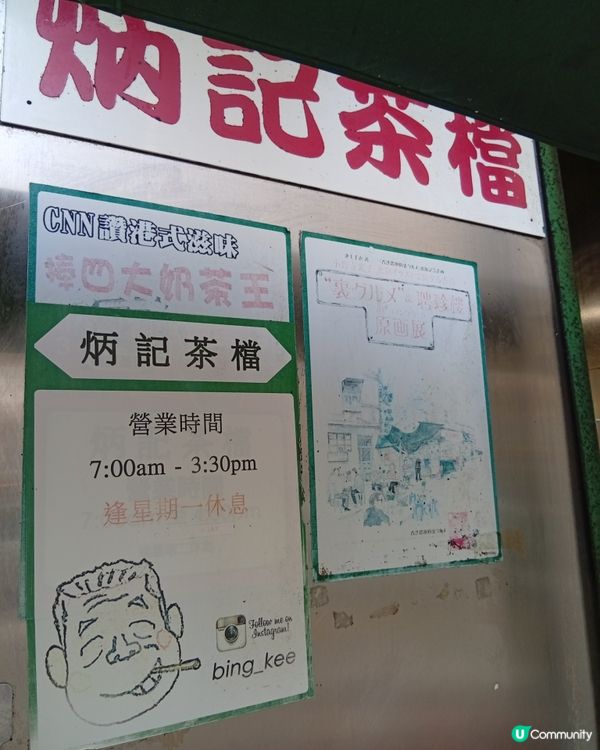 炳記茶檔
CNN讚港式滋味
捧四大奶茶王
炳記茶檔
營業時間
7:00am - 3:30pm
逢星期一休息
Follow me on
Instagram!
bing_kee
"裏グルメ"
聘珍楼
原画展
U Community